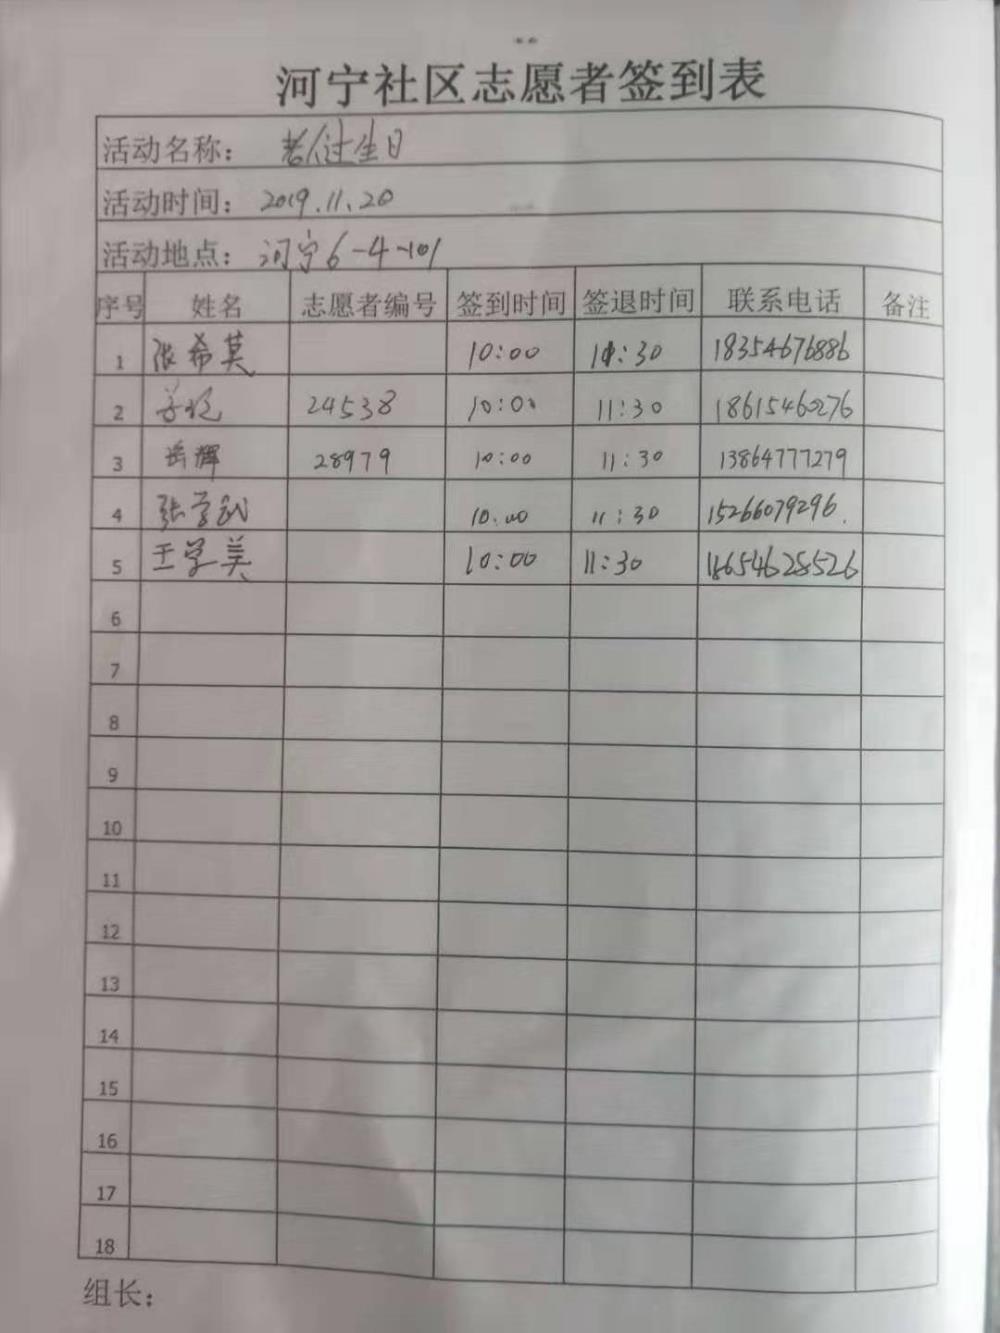 河宁社区志愿者签到表
活动名称： 老人过生日
活动时间： 2019.11.20
活动地点： 河宁6-4-101
序号 姓名 志愿者编号 签到时间 签退时间 联系电话 备注
1 张希莫 10:00 11:30 18354676886
2 24538 10:00 11:30 18615460276
3 岳辉 28979 10:00 11:30 13864777279
4 张学武 10.00 11:30 15266079296.
5 王学美 10:00 11:30 18654628526
6
7
8
9
10
11
12
13
14
15
16
17
18
组长：